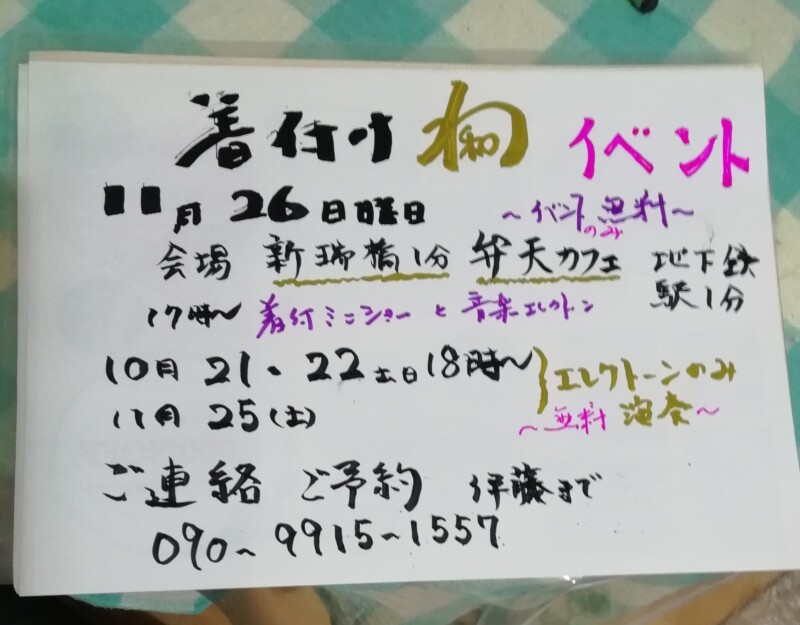 着付け 和 イベント
11月 26日日曜日 ～イベントのみ無料～
会場 新瑞橋1分 弁天カフェ 地下鉄駅1分
17時～ 着付ミニショーと音楽エレクトーン
10月 21・22土日18時～ エレクトーンのみ演奏
11月 25(土) ～無料～
ご連絡 ご予約 伊藤まで
090～9915～1557